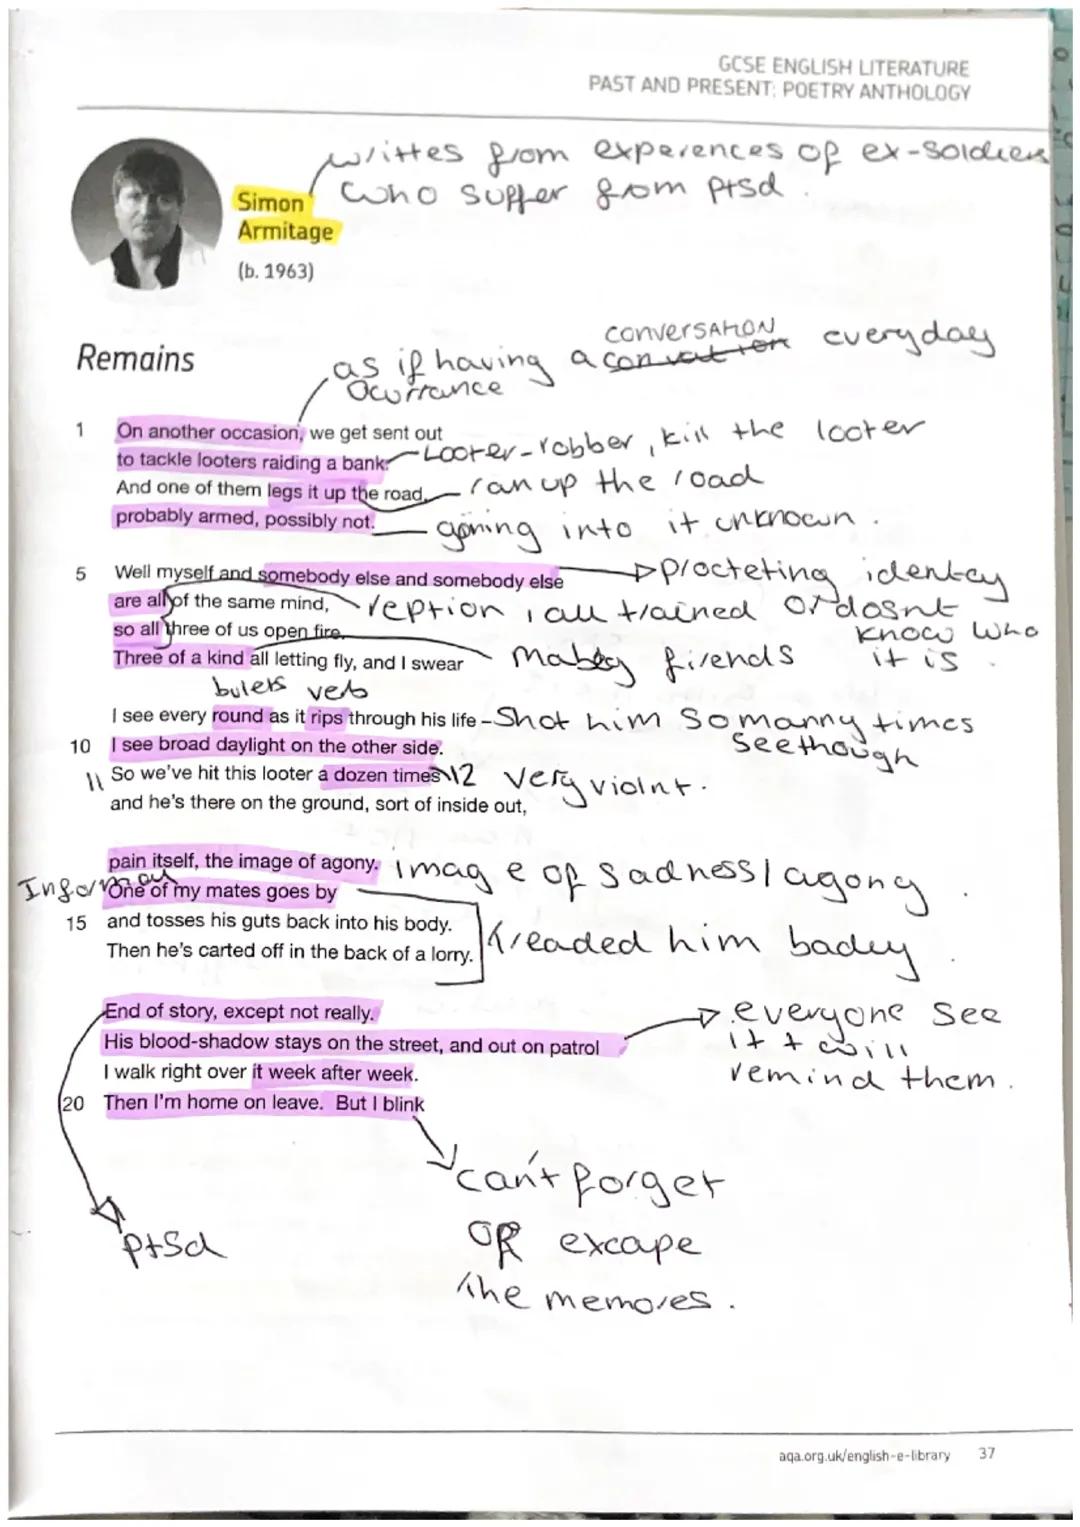 GCSE ENGLISH LITERATURE
PAST AND PRESENT: POETRY ANTHOLOGY
writtes from experences of ex-soldiers
who suffer from ptsd.
Simon
Armitage
(b. 1963)
Remains
as if having a conversation everyday
Ocurrance
1 On another occasion, we get sent out
to tackle looters raiding a bank.
Looter-robber, kill the looter
And one of them legs it up the road,
ran up the road
probably armed, possibly not.
going into it unknown.
5 Well myself and somebody else and somebody else
procteting identey
or dosnt
know who
it is.
are all of the same mind,
reption, all trained
so all three of us open fire.
Three of a kind all letting fly, and I swear
friends
bulets verb
I see every round as it rips through his life -
Shot him so manny times
seethough
10 I see broad daylight on the other side.
11 So we've hit this looter a dozen times
12 very violnt.
and he's there on the ground, sort of inside out,
pain itself, the image of agony.
image of sadness/agony.
Informal
One of my mates goes by
15 and tosses his guts back into his body.
Then he's carted off in the back of a lorry.
treaded him badey.
End of story, except not really.
His blood-shadow stays on the street, and out on patrol
everyone see
it + will
remind them.
I walk right over it week after week.
20 Then I'm home on leave. But I blink
can't forget
OR excape
the memores.
Ptsd
aqa.org.uk/english-e-library 37